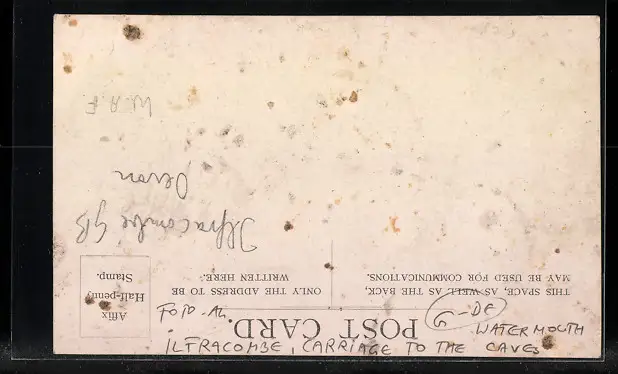 POST CARD.
THIS SPACE, AS WELL AS THE BACK,
MAY BE USED FOR COMMUNICATIONS.
ONLY THE ADDRESS TO BE
WRITTEN HERE.
Affix
Half-penny
Stamp.
Ilfracombe GB
Devon
G-DE
WATERMOUTH
ILFRACOMBE, CARRIAGE TO THE CAVES